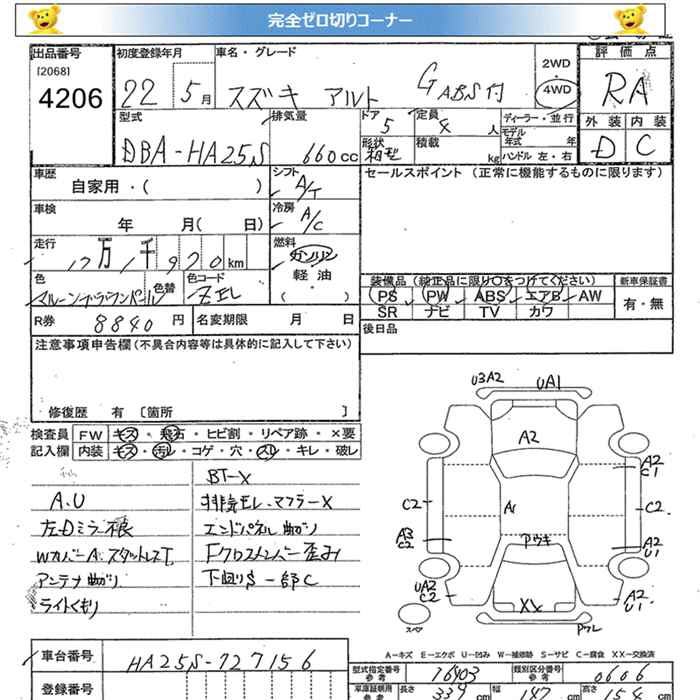 完全ゼロ切りコーナー
出品番号 初度登録年月 車名・グレード 2WD 評価点
[2068]
4206 22 5月 スズキ アルト G ABS付 4WD RA
型式 排気量 ドア 定員 ディーラー・並行 外装 内装
DBA-HA25S 660cc 5 4人 モデル年式 年 D C
形状 箱型 積載 kg ハンドル 左・右
車歴 シフト セールスポイント (正常に機能するものに限ります)
自家用・( ) A/T
車検 冷房
年 月( 日) A/C
走行 燃料
12万1千920km ガソリン
軽油
色 色替 色コード 装備品 (純正品に限り○をつけてください) 新車保証書
ZEL ・( ) PS PW ABS エアB AW 有・無
SR ナビ TV カワ
R券 8840円 名変期限 月 日 後日品
注意事項申告欄 (不具合内容等は具体的に記入して下さい)
修復歴 有 [箇所 ]
検査員 FW キズ・飛石・ヒビ割・リペア跡・×要
記入欄 内装 キズ・汚レ・コゲ・穴・スレ・キレ・破レ
BT-X
A.U 排気モレ・マフラーX
左Dミラー根 エンドパネル曲がり
WカバーA スタットレスT Fクロスメンバー歪み
アンテナ曲がり 下廻りS 一部C
ライトくもり
U3A2 UA1
A2
A2
C1
C2 A1 C2
A3
C2
アウキ
A2
U1
UA2
C2
XX
A2
U1
スペア
Pフレ
A-キズ E-エクボ U-凹み W-補修跡 S-サビ C-腐食 XX-交換済
車台番号 HA25S-727156 型式指定番号 参考 16403 類別区分番号 参考 0606
登録番号 車庫証明用 参考 長さ 339cm 幅 147cm 高さ 154cm